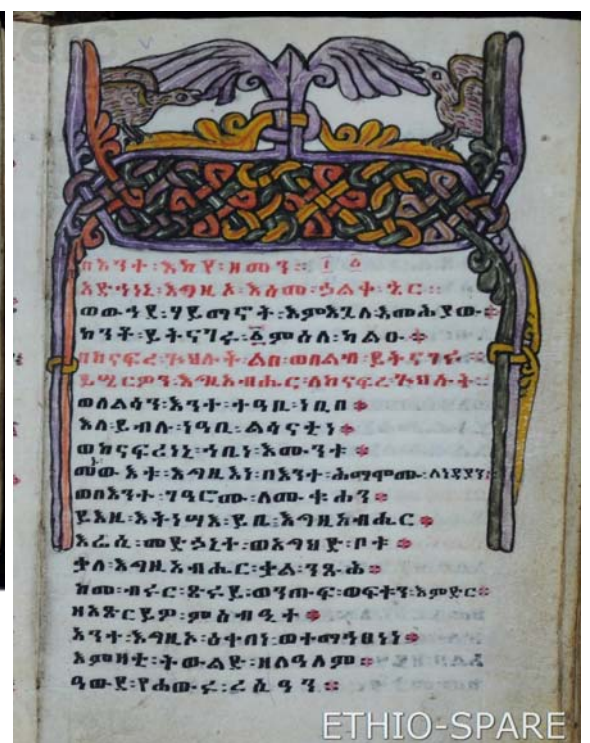 በእንተ፡እኩያ፡ዘመን፡፡ ፲ ፩
አድኅነኒ፡እግዚኦ፡እስመ፡ኃልቀ፡ኄር፡፡
ወውኅደ፡ሃይማኖት፡እምእጓለ፡እመሕያው፡
ከንቶ፡ይትናገሩ፡፩ምስለ፡ካልዑ፡፡
በከናፍረ፡ጕህሉት፡ልበ፡ወበልብ፡ይትናገሩ፡፡
ይሤርዎን፡እግዚአብሔር፡ለከናፍረ፡ጕህሉት፡፡
ወለልሳን፡እንተ፡ተዓቢ፡ነቢበ፡፡
እለ፡ይብሉ፡ነዓቢ፡ልሳናቲነ፡፡
ወከናፍሪነኒ፡ኀቤነ፡እሙንቱ፡፡
መኑውእቱ፡እግዚእነ፡በእንተ፡ሕማሞሙ፡ለነዳያን፡
ወበእንተ፡ገዓሮሙ፡ለሙቁሓን፡፡
ይእዜ፡እትነሣእ፡ይቤ፡እግዚአብሔር፡፡
እሬሲ፡መድኃኒተ፡ወእግህድ፡ቦቱ
ቃለ፡እግዚአብሔር፡ቃል፡ንጹሕ፡፡
ከመ፡ብሩር፡ጽሩይ፡ወንጡፍ፡ወፍተን፡እምድር፡፡
ዘአጽረይዎ፡ምስብዒተ፡፡
አንተ፡እግዚኦ፡ዕቀበነ፡ወተማኅፀነነ፡፡
እምዛቲ፡ትውልድ፡ዘለዓለም፡፡
ዓውደ፡የሐውሩ፡ረሲዓን፡፡
ETHIO-SPARE